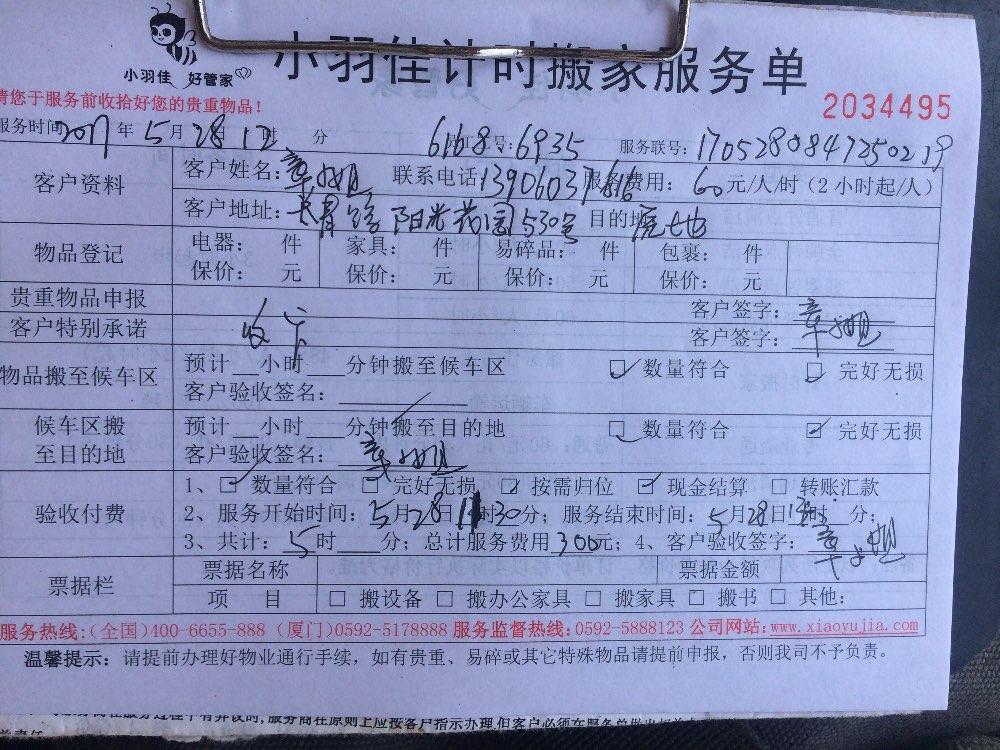 小羽佳 好管家
小羽佳计时搬家服务单
请您于服务前收拾好您的贵重物品！
2034495
服务时间 2017年5月28日12时 分 6168号:6935 服务联号:
客户资料 客户姓名:章小姐 联系电话 服务费用: 60元/人/时（2小时起/人）
客户地址: 阳光花园530号 目的地
物品登记 电器: 件 家具: 件 易碎品: 件 包裹: 件
保价: 元 保价: 元 保价: 元 保价: 元
贵重物品申报 客户签字: 章小姐
客户特别承诺 客户签字:
物品搬至候车区 预计__小时___分钟搬至候车区 ☑数量符合 ☑完好无损
客户验收签名:
候车区搬至目的地 预计__小时___分钟搬至目的地 ☑数量符合 ☑完好无损
客户验收签名: 章小姐
验收付费 1、☑数量符合 ☑完好无损 ☑按需归位 ☑现金结算 □转账汇款
2、服务开始时间: 5月28日11时30分; 服务结束时间: 5月28日 时 分;
3、共计: 5时___分; 总计服务费用300元; 4、客户验收签字: 章小姐
票据栏 票据名称 票据金额
项 目 □搬设备 □搬办公家具 □搬家具 □搬书 □其他:
服务热线:(全国)400-6655-888 (厦门)0592-5178888 服务监督热线:0592-5888123 公司网站:www.xiaoyujia.com
温馨提示: 请提前办理好物业通行手续，如有贵重、易碎或其它特殊物品请提前申报，否则我司不予负责。
服务商在原则上应按客户指示办理,但客户必须在服务单